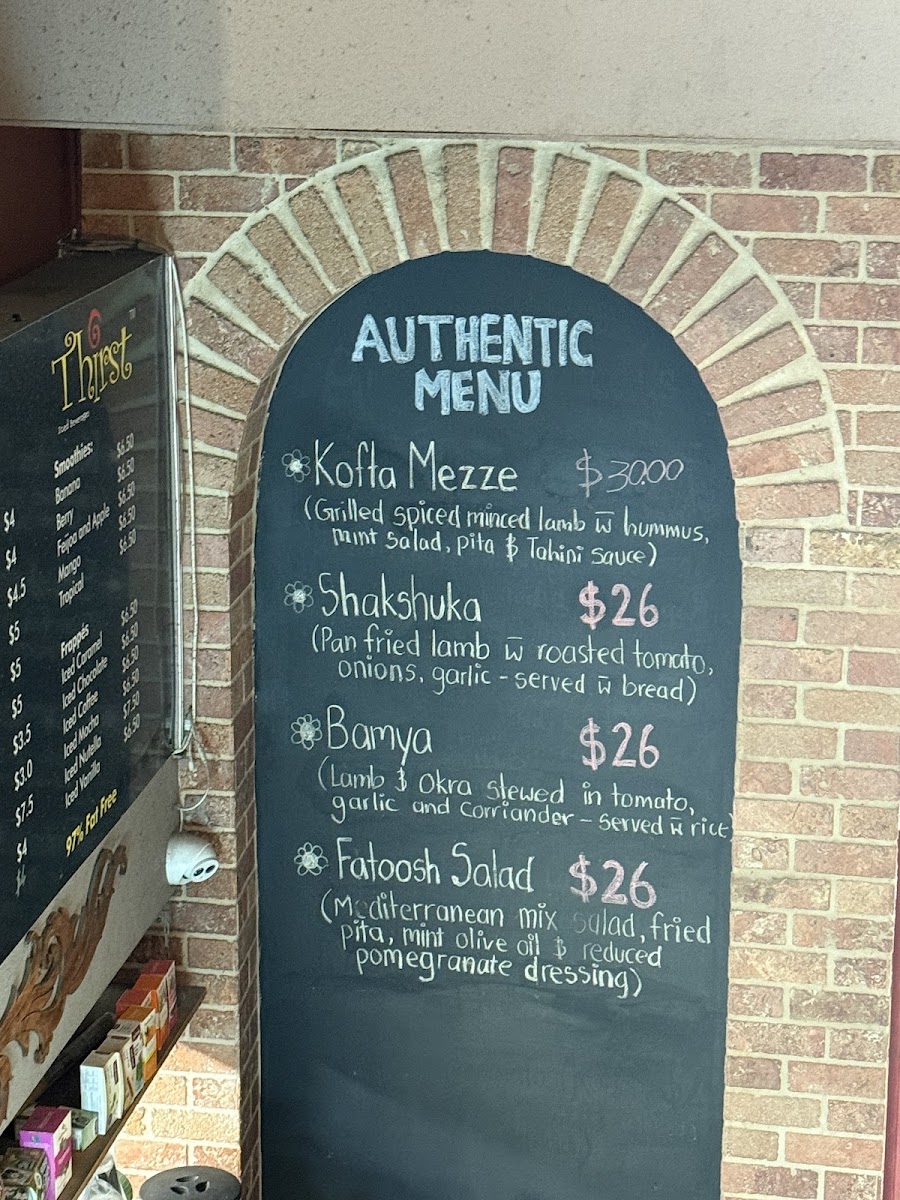 Thirst
Iced Beverages
Smoothies:
Banana $6.50
Berry $6.50
Feijoa and Apple $6.50
Mango $6.50
Tropical $6.50
Frappés
Iced Caramel $6.50
Iced Chocolate $6.50
Iced Coffee $6.50
Iced Mocha $6.50
Iced Nutella $7.50
Iced Vanilla $6.50
97% Fat Free
$4
$4
$4.5
$5
$5
$5
$3.5
$3.0
$7.5
$4
AUTHENTIC
MENU
Kofta Mezze $30.00
(Grilled spiced minced lamb w̅ hummus,
mint salad, pita & Tahini sauce)
Shakshuka $26
(Pan fried lamb w̅ roasted tomato,
onions, garlic - served w̅ bread)
Bamya $26
(Lamb & Okra stewed in tomato,
garlic and corriander - served w̅ rice)
Fatoosh Salad $26
(Mediterranean mix salad, fried
pita, mint olive oil & reduced
pomegranate dressing)